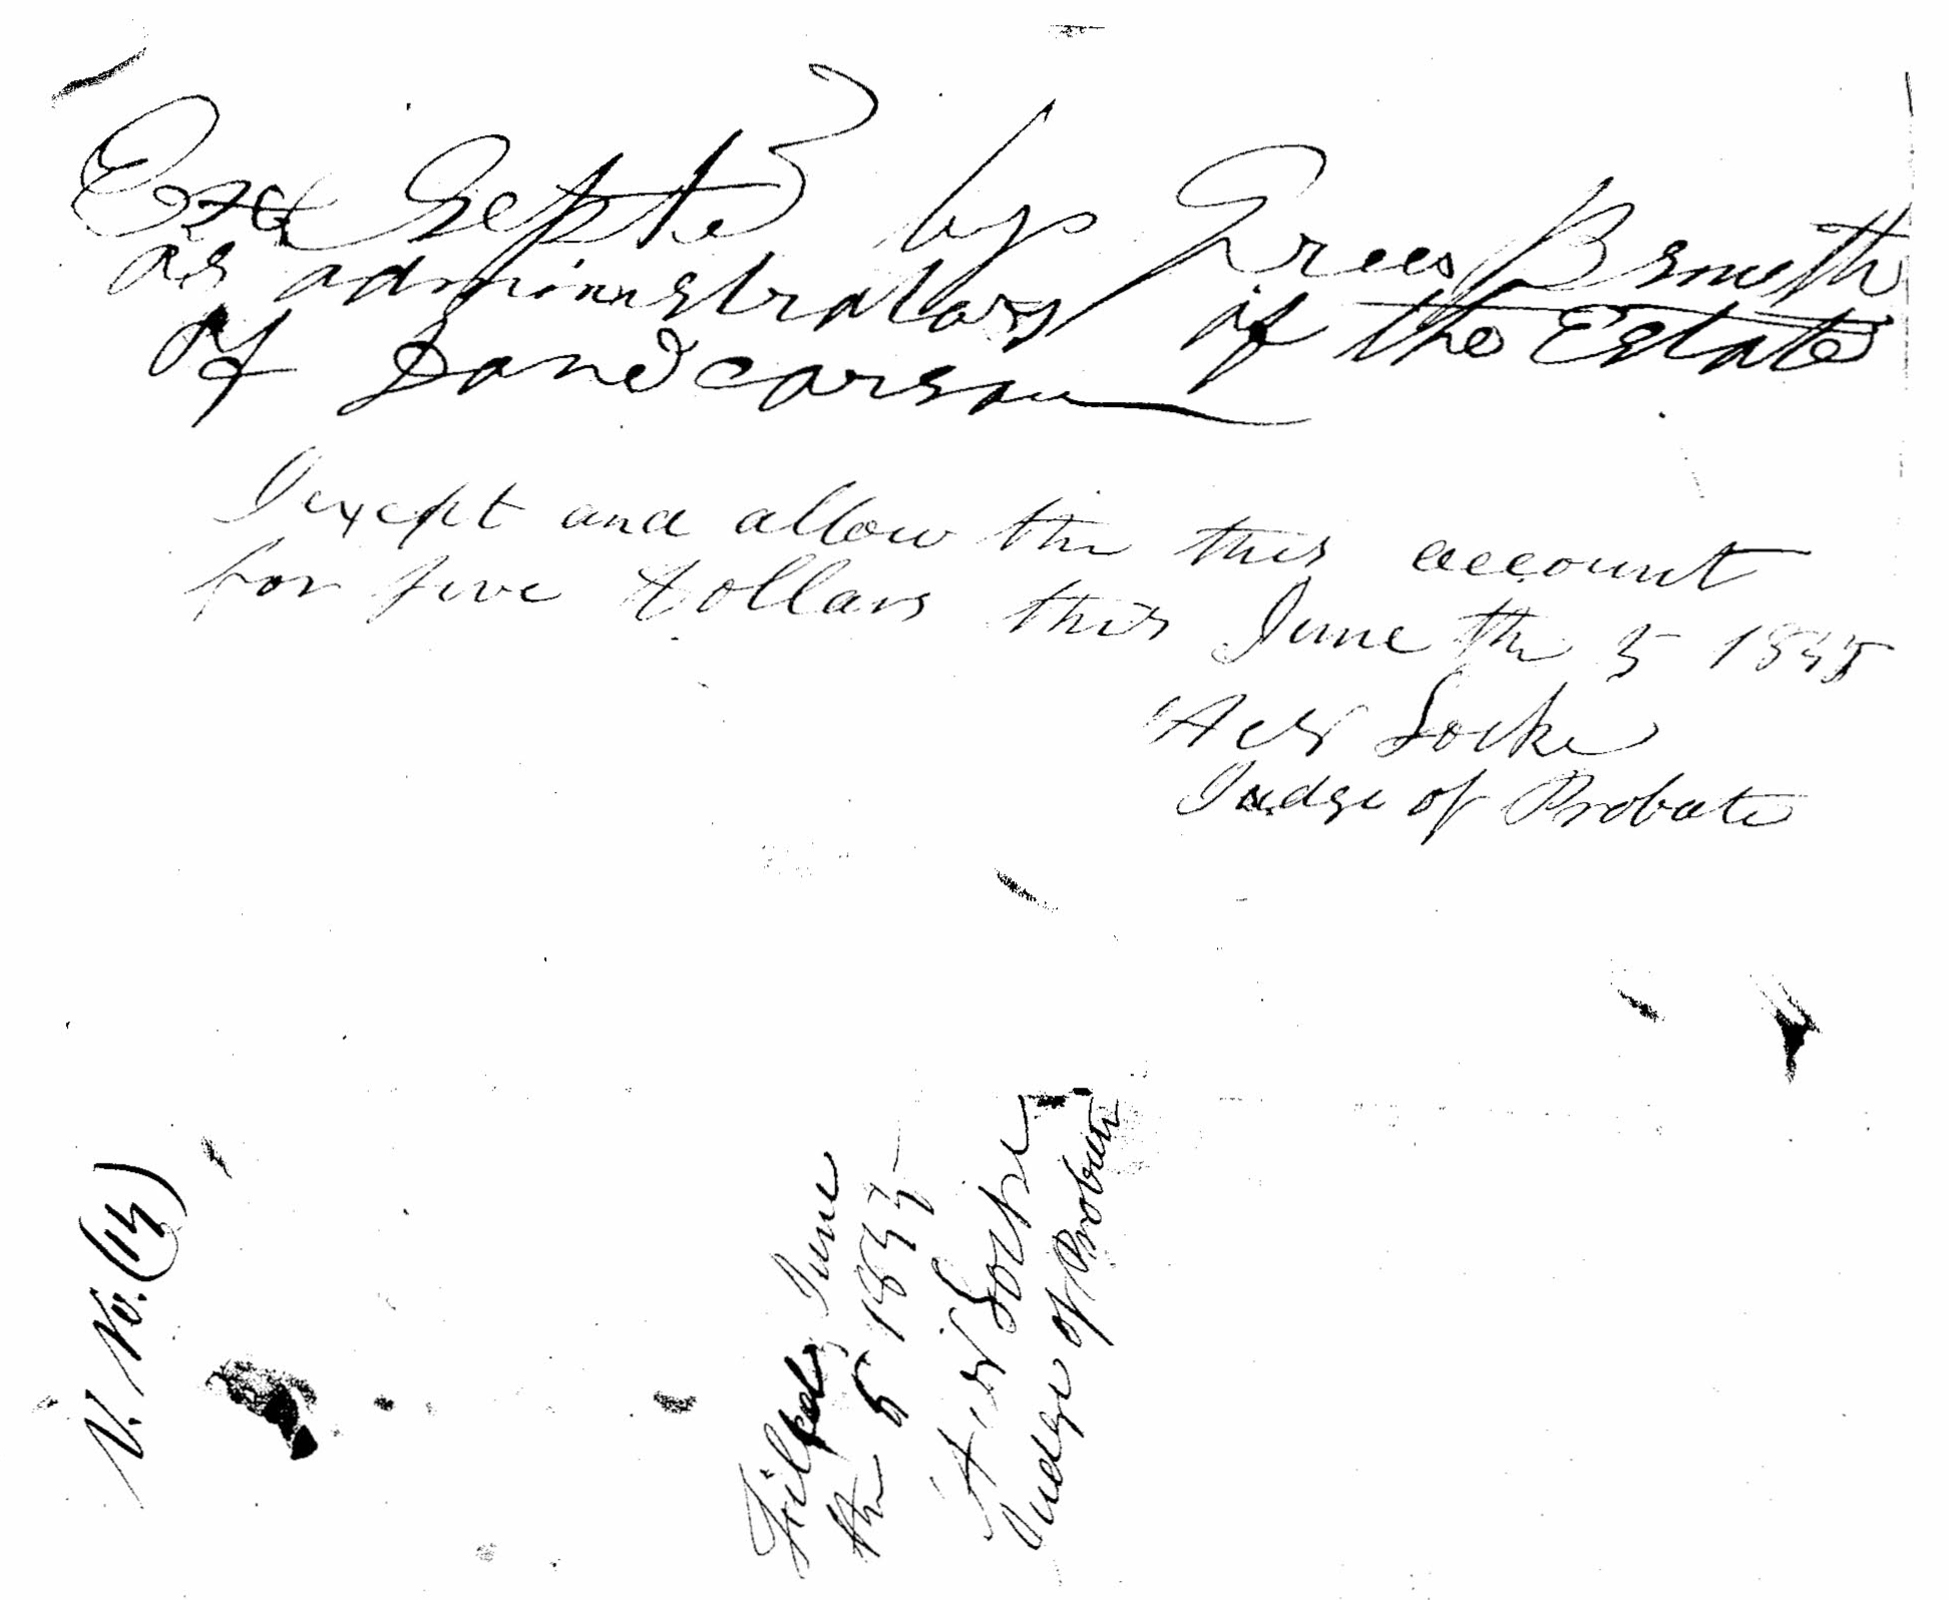 by Green B Smeth
as adminnstrators of the Estate
of Dane carson
I except and allow the this account
for five dollars this June th 5 1855
Locke
Judge of Probate
V. No. (14)
Filed June
the 5 1855
Locke
Judge of Probate